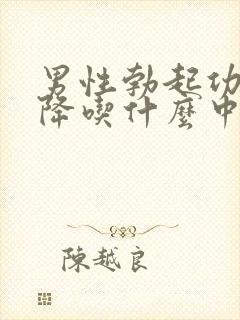 男性勃起功
降喫什麼中
陳越良